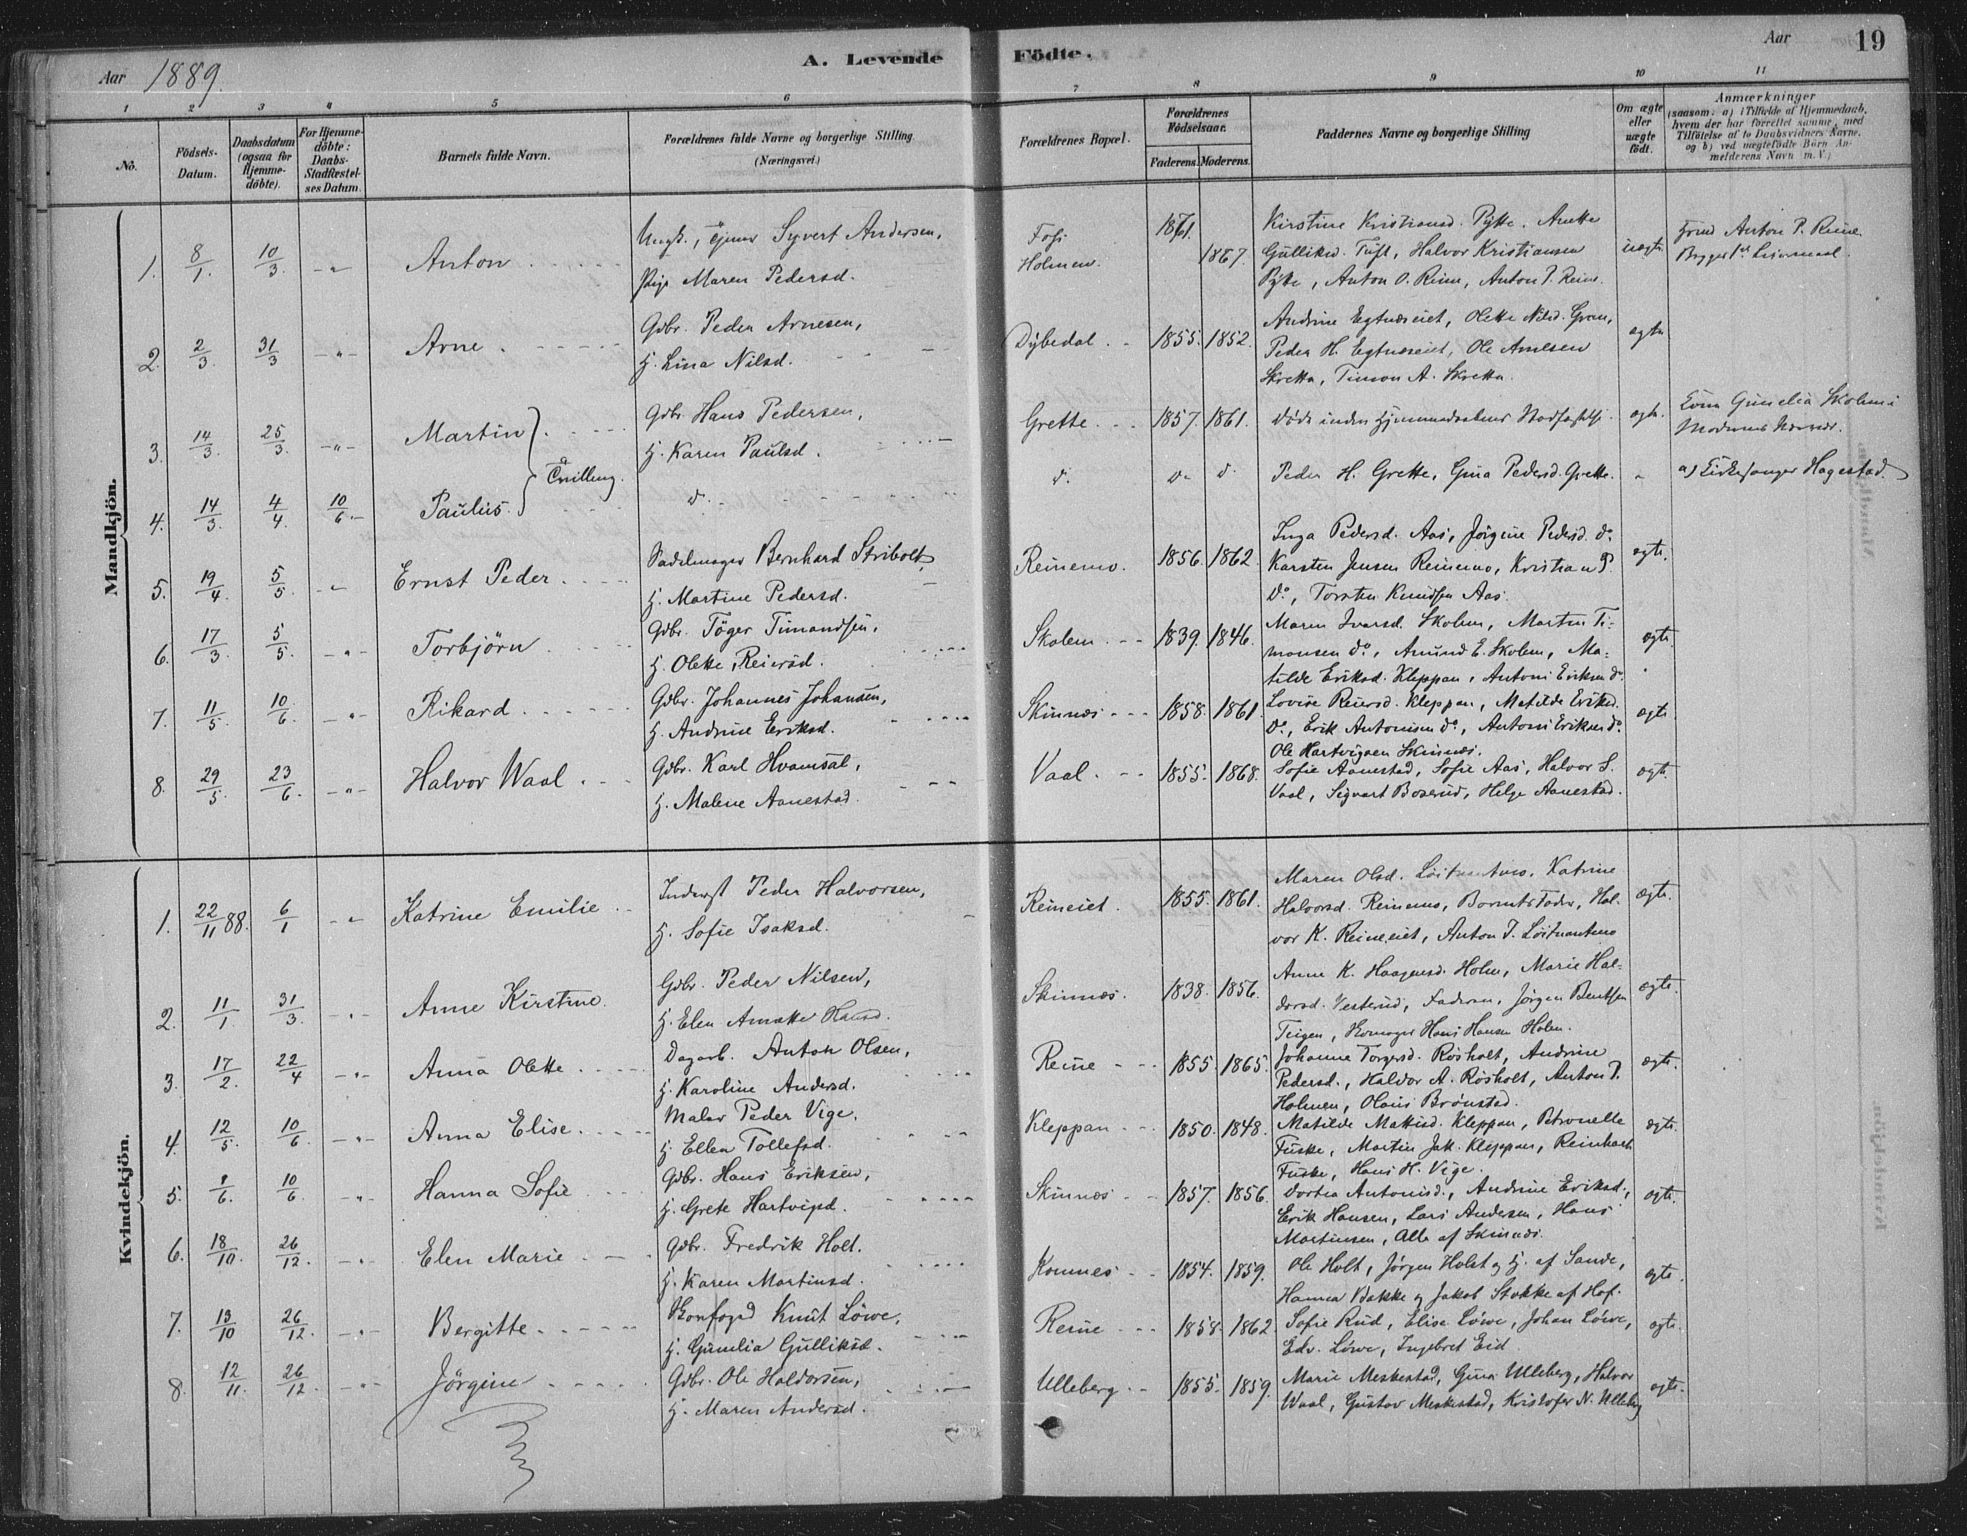 A. Levende Födte.
Aar 1889.
Aar 19
1 2 3 4 5 6 7 8 9 10 11
No.
Födsels-Datum.
Daabsdatum (ogsaa for Hjemmedöbte).
For Hjemmedöbte: Daabs-Stadfæstelses Datum.
Barnets fulde Navn.
Forældrenes fulde Navne og borgerlige Stilling. (Næringsvei.)
Forældrenes Bopæl.
Forældrenes Födselsaar.
Faderens. Moderens.
Faddernes Navne og borgerlige Stilling
Om ægte eller uægte födt.
Anmærkninger
(saasom: a) i Tilfælde af Hjemmedaab, hvem der har forrettet samme, med Tilföielse af to Daabsvidners Navne, og b) ved uægtefödte Börn Anmelderens Navn m. V.)
Mandkjön.
1. 8/1 10/3 -"- Anton
Ungk., Syvert Andersen,
Pige Maren Pedersd.
Foss Holmen. 1861. 1867.
Kirstine Kristiansd. Pytte. Anette
Gulliksd. Tuft, Halvor Kristiansen
Pytte, Anton O. Reine, Anton P. Reine.
uægte
Anton P. Reine
2. 2/3 31/3 -"- Arne
Gdbr. Peder Arnesen,
H. Lina Nilsd.
Dybedal 1855. 1852.
Andrine Egtneseiet, Olette Nilsd. Gran,
Peder H. Egtneseiet, Ole Arnesen
Skretta, Timon A. Skretta.
ægte
3. 14/3 25/3 -"- Martin
Gdbr. Hans Pedersen,
H. Karen Paulsd.
Grette 1857. 1861.
Døde inden Hjemmedaabens Stadfæstelse. ægte.
Gunelia Skolem
Tvilling.
4. 14/3 4/4 10/6 Paulus.
d. d. d. d.
Peder H. Grette, Gina Pedersd. Grette. -
a) Kirkesanger Hagestad.
5. 19/4 5/5 -"- Ernst Peder
Sadelmager Bernhard Stribolt,
H. Martine Pedersd.
Reinemo. 1856. 1862.
Inga Pedersd. Aas, Jørgine Pedersd. do.
Karsten Jensen Reinemo, Kristian P.
Do., Torsten Knudsen Aas.
ægte.
6. 17/3 5/5 -"- Torbjörn
Gdbr. Töger Timandsen,
H. Olette Reiersd.
Skolem 1839. 1846.
Maren Ivarsd. Skolem, Martin Ti-
monsen do., Amund E. Skolem, Ma-
tilde Eriksd. Kleppan, Antoni Eriksen do.
ægte.
7. 11/5 10/6 -"- Rikard
Gdbr. Johannes Johansen,
H. Andrine Eriksd.
Skinnæs 1858. 1861.
Lovise Reiersd. Kleppan, Matilde Eriksd.
Do., Erik Antonisen do., Antoni Eriksen do.
Ole Hartvigsen Skinnæs.
ægte.
8. 29/5 23/6 -"- Halvor Waal
Gdbr. Karl Hvamsal,
H. Malene Aanestad.
Vaal 1855. 1868.
Sofie Aanestad, Sofie Aas, Halvor S.
Vaal, Sigvart Boserud, Helge Aanestad.
ægte.
Kvindekjön.
1. 22/11 88. 6/1 -"- Katrine Emilie
Inderst Peder Halvorsen,
H. Sofie Isaksd.
Reineiet. 1855. 1861.
Maren Olsd. Løitnantmo, Katrine
Halvorsd. Reinemo, Barnets Fader, Hal-
vor K. Reineeiet, Anton J. Løitnantmo
ægte.
2. 11/1 31/3 -"- Anne Kirstine.
Gdbr. Peder Nilsen,
H. Elen Anette Hansd.
Skinnæs. 1838. 1856.
Anne K. Haagensd. Holm, Marie Hal-
dorsd. Vesterud, Faderen, Jørgen Bentsen
Teigen, Skomager Hans Hansen Holm.
ægte.
3. 17/2. 22/4 -"- Anna Olette
Dagarb. Anton Olsen,
H. Karoline Andersd.
Reine 1855. 1865.
Johanne Torgersd. Rösholt, Andrine
Pedersd., Haldor A. Rösholt, Anton P.
Holmen, Olaus Brönstad.
ægte.
4. 12/5. 10/6 -"- Anna Elise
Maler Peder Vige.
H. Ellen Tollefsd.
Kleppan 1850. 1848.
Matilde Mathisd. Kleppan, Petronelle
Fuske, Martin Jak. Kleppan, Reinhart
Fuske, Hans H. Vige.
ægte.
5. 8/6. 10/6 -"- Hanna Sofie
Gdbr. Hans Eriksen,
H. Grete Hartvigsd.
Skinnæs 1857. 1856.
Dortea Antonisd., Andrine Eriksd.,
Erik Hansen, Lars Andersen, Hans
Martinsen, Alle af Skinnæs.
ægte.
6. 18/10 26/12. -"- Elen Marie
Gdbr. Fredrik Holt.
H. Karen Martinsd.
Komnes 1854. 1859.
Ole Holt, Jörgen Holst og H. af Sande,
Hanna Bakke og Jakob Stokke af Hof.
ægte.
7. 13/10 26/12. -"- Bergitte
Knut Löwe,
H. Gunelia Gulliksd.
Reine 1858. 1862
Sofie Rud, Elise Löwe, Johan Löwe,
Edv. Löwe, Ingebret Eid.
ægte.
8. 12/11. 26/12 -"- Jörgine
Gdbr. Ole Haldorsen,
H. Maren Andersd.
Ulleberg 1855. 1859.
Marie Meskestad, Gina Ulleberg, Halvor
Waal, Gustav Meskestad, Kristofer N. Ulleberg
ægte.